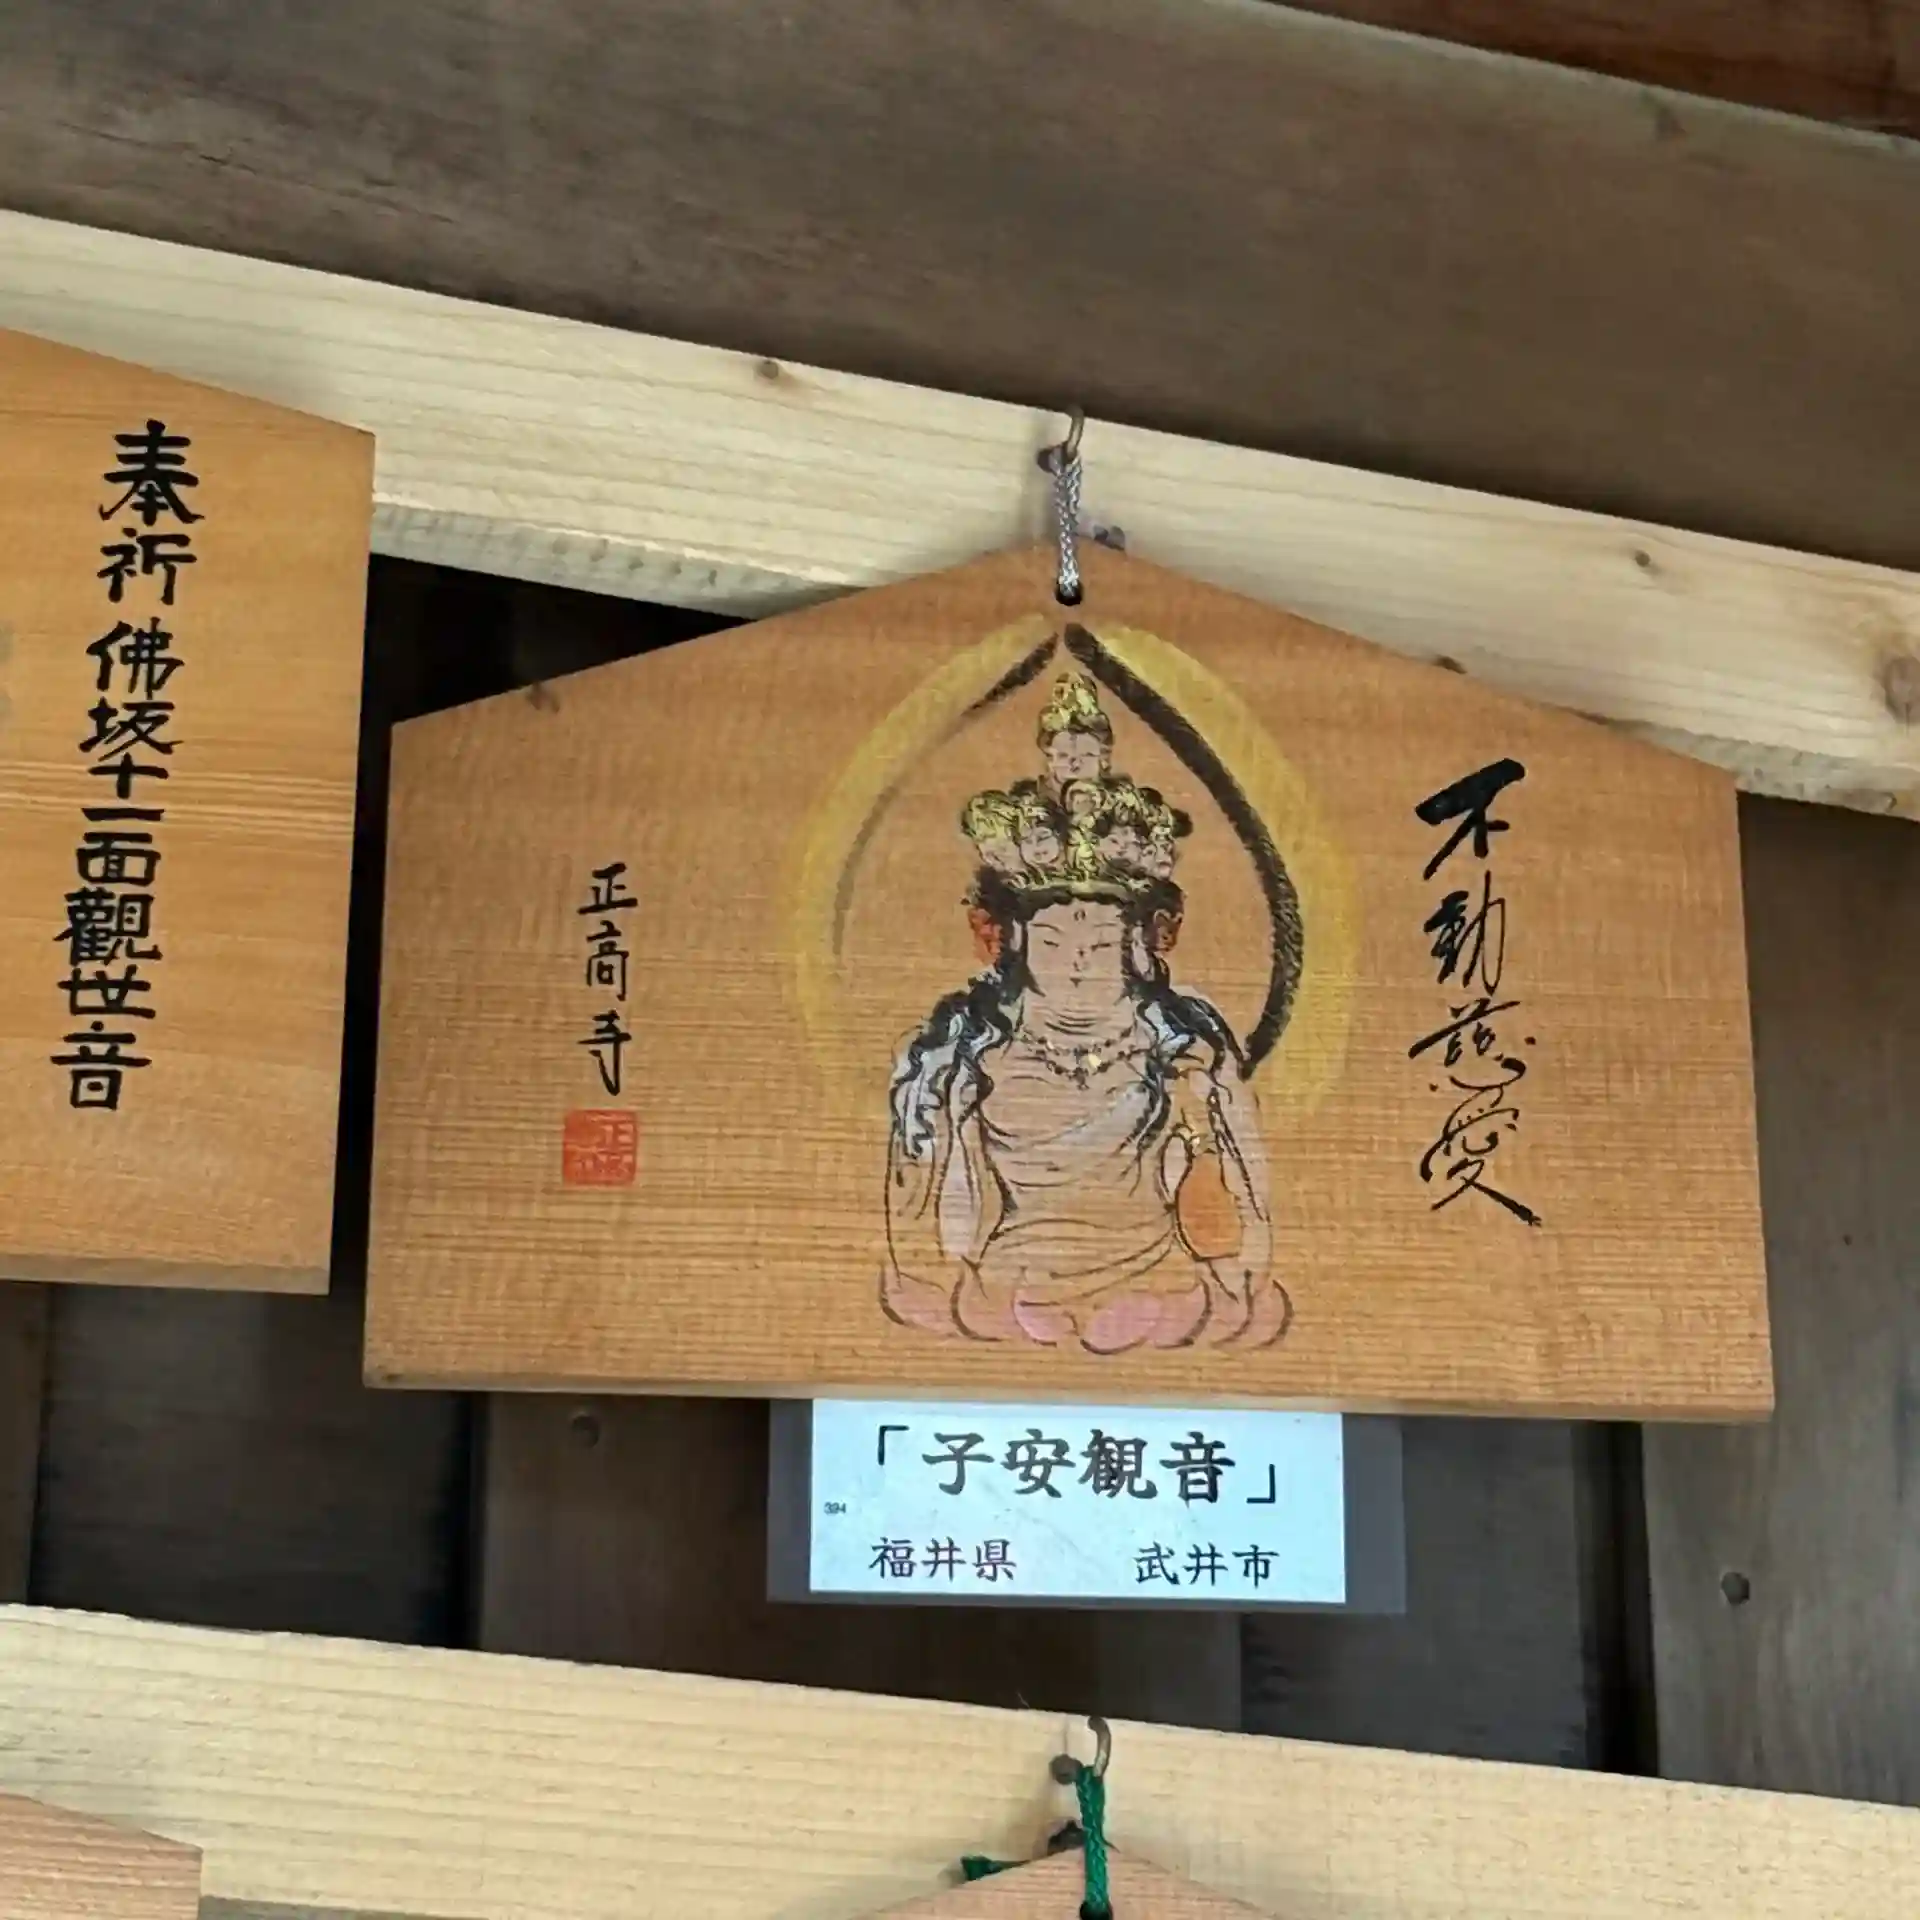 不動慈愛
正高寺
奉祈 佛坂十一面觀世音
「子安観音」
394
福井県 武井市